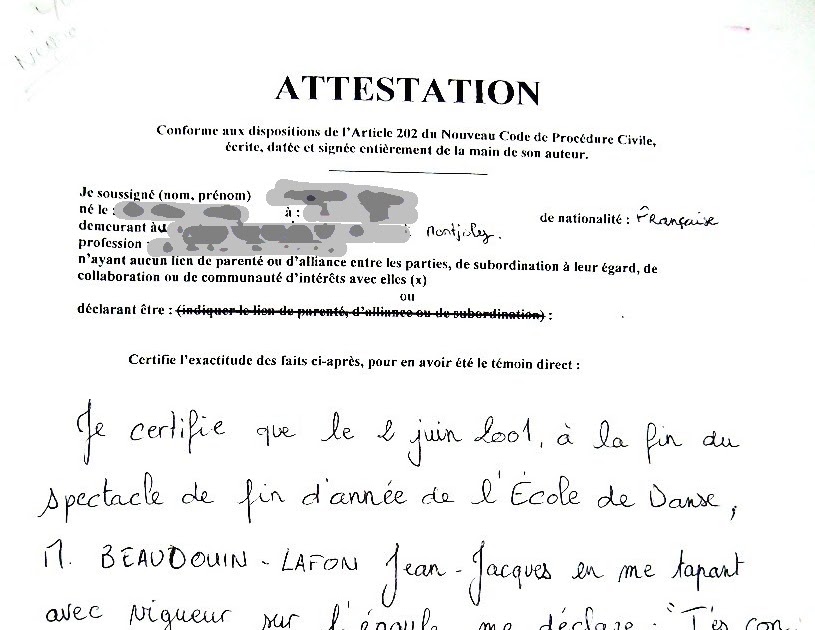 ATTESTATION
Conforme aux dispositions de l'Article 202 du Nouveau Code de Procédure Civile,
écrite, datée et signée entièrement de la main de son auteur.
Je soussigné (nom, prénom)
né le : à : de nationalité : Française
demeurant à
profession
n'ayant aucun lien de parenté ou d'alliance entre les parties, de subordination à leur égard, de
collaboration ou de communauté d'intérêts avec elles (x)
ou
déclarant être : (indiquer le lien de parenté, d'alliance ou de subordination) :
Certifie l'exactitude des faits ci-après, pour en avoir été le témoin direct :
Je certifie que le 2 juin 2001, à la fin du
spectacle de fin d'année de l'École de Danse,
M. BEAUDOUIN - LAFON Jean-Jacques en me tapant
avec vigueur sur l'épaule me déclare : "T'es con